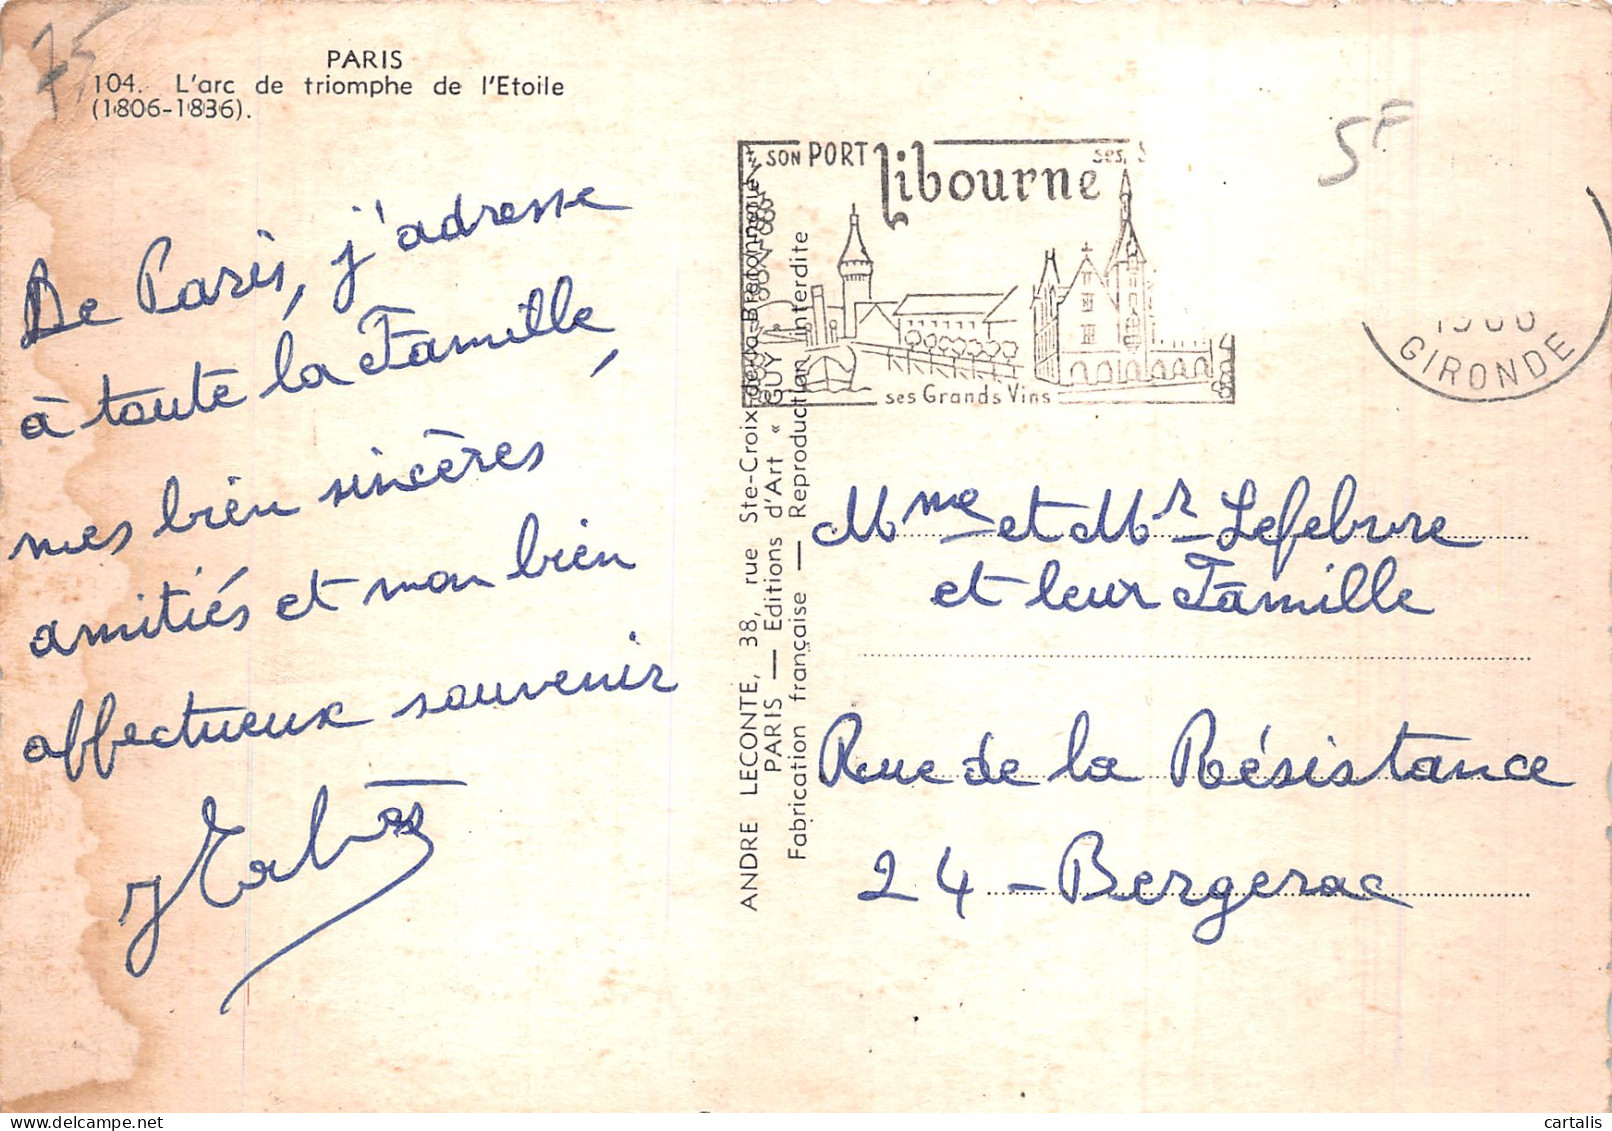 75
PARIS
104. L'arc de triomphe de l'Etoile
(1806-1836).
De Paris, j'adresse
à toute la Famille,
mes bien sincères
amitiés et mon bien
affectueux souvenir
SON PORT
Libourne
ses
ses Grands Vins
GIRONDE
5F
ANDRE LECONTE, 38, rue Ste-Croix-de-la-Bretonnerie
PARIS — Editions d'Art « GUY »
Fabrication française — Reproduction interdite
Mme et Mr Lefebvre
et leur Famille
Rue de la Résistance
24 - Bergerac
cartalis